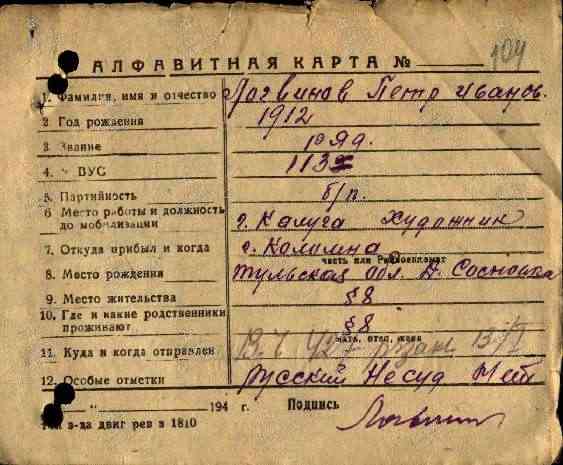 АЛФАВИТНАЯ КАРТА № 104
1. Фамилия, имя и отчество Логвинов Петр Иванов.
2 Год рождения 1912
3. Звание ряд.
4. ВУС 113
5. Партийность б/п.
6 Место работы и должность до мобилизации г. Калуга Художник
7. Откуда прибыл и когда с. Калинина
часть или Райвоенкомат
8. Место рождения Тульская обл. д. Сосновка
9. Место жительства §8
10. Где и какие родственники проживают §8
мать, отец, жена
11. Куда и когда отправлен В. Ч. 427
12. Особые отметки Русский Несуд Нет
" " 194 г. Подпись
з-да двиг рев з 1810